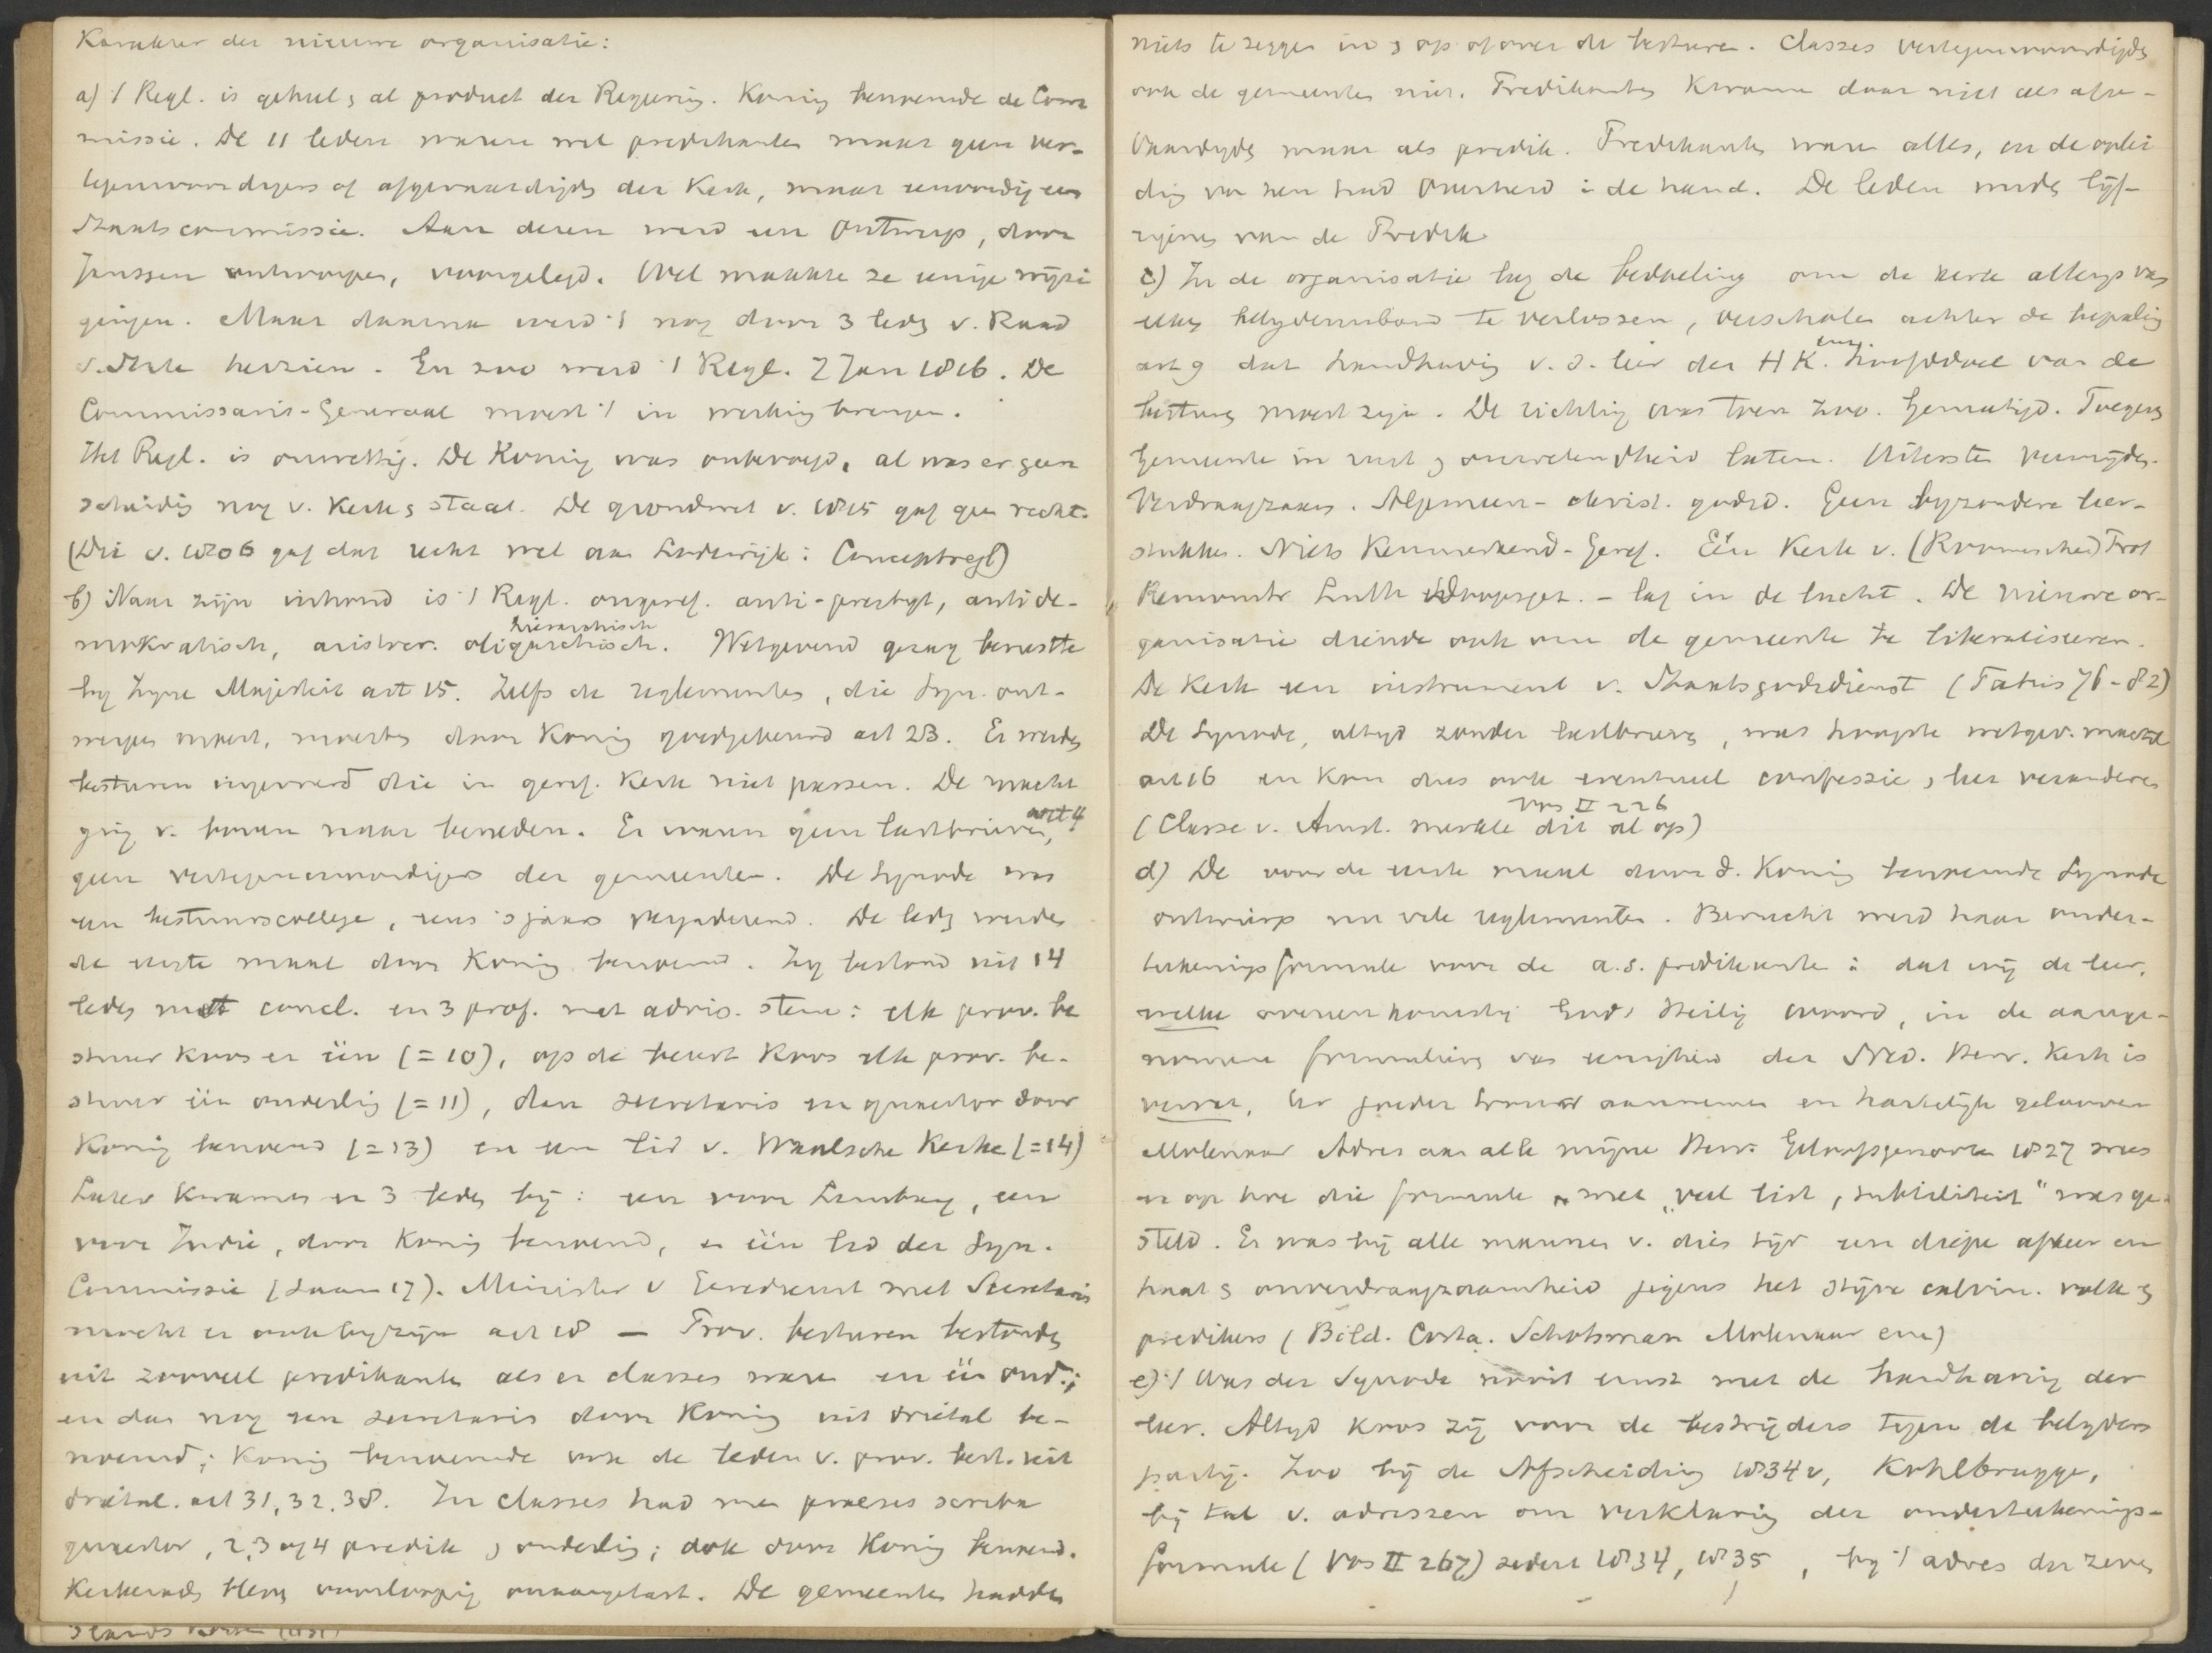 Karakter der nieuwe organisatie:
a) 't Regl. is geheel & al product der Regering. Koning benoemde de Com
missie. De 11 leden waren wel predikanten maar geen ver-
tegenwoordigers of afgevaardigds der Kerk, maar eenvoudig een
Staatscommissie. Aan dezen werd een Ontwerp, door
Janssen ontworpen, voorgelegd. Wel maakte ze enige wijzi
gingen. Maar daarna werd 't nog door 3 leds v. Raad
v. State herzien. En zoo werd 't Regl. 7 Jan 1816. De
Commissaris-Generaal moest 't in werking brengen.
Het Regl. is onwettig. De Koning was onbevoegd, al was er geen
scheiding nog v. Kerk & staat. De grondwet v. 1815 gaf geen recht.
(Die v. 1806 gaf dat recht wel aan Lodewijk: Conceptregl)
b) Naar zijn inhoud is 't Regl. ongeref. anti-presbyt, antide-
mokratisch, aristocr. oligarchisch. Wetgevend gezag berustte
hierarchisch
by Zyne Majesteit art 15. Zelfs de reglementen, die Syn. ont-
werpen moest, moesten door Koning goedgekeurd art 23. Er werden
besturen ingevoerd die in geref. Kerk niet passen. De macht
ging v. boven naar beneden. Er waren geen lastbrieven, art 4
geen vertegenwoordigers der gemeenten. De Synode was
een bestuurscollege, eens 's jaars vergaderend. De leds werden
de eerste maal door Koning benoemd. Zy bestond uit 14
leden met concl. en 3 prof. met advis. stem: elk prov. be
stuur koos er één (= 10), op de beurt koos elk prov. be-
stuur één ouderling (= 11), dan secretaris en quaestor door
Koning benoemd (= 13) en een lid v. Waalsche Kerke (= 14)
Later kwamen er 3 leden bij: een voor Limburg, een
voor Indie, door Koning benoemd, en één lid der Syn.
Commissie (daar 17). Minister v Eeredienst met Secretaris
mocht er ook by zijn art 18 — Prov. besturen bestonden
uit zooveel predikanten als er classes waren en één oud.;
en dan nog een secretaris door Koning uit drietal be-
noemd; Koning benoemde ook de leden v. prov. best. uit
drietal. art 31, 32, 38. In classes had men praeses scriba
quaestor, 2, 3 of 4 predik & ouderling; ook door Koning benoemd.
Kerkerads bleven voorloopig onaangetast. De gemeenten hadden
niets te zeggen in & op of over de besturen. Classes vertegenwoordigds
ook de gemeenten niet. Predikanten kwamen daar niet als afge-
vaardigds maar als predik. Predikants waren alles, en de oplei
ding van hen had Overheid in de hand. De leden werden lijf-
eigenen van de Predik
c) In de organisatie lag de bedoeling om de kerk allengs van
elken belydenisband te verlossen, verscholen achter de bepaling
art 9 dat handhaving v. d. leer der HK. een hoofddoel van de
besturen moest zijn. De richting was toen zoo. Gematigd.
Gemeente in rust & onwetendheid laten. Uitersten vermyden.
Verdraagzaam. Algemeen-christ. godsd. Geen byzondere leer-
stukken. Niets kenmerkend-Geref. Eén Kerk v. (Roomschen) Prot
Remonstr Luth Doopsgez. - lag in de lucht. De nieuwe or-
ganisatie diende ook om de gemeente te liberaliseren.
De Kerk een instrument v. Staatsgodsdienst (Fabius 76-82)
De Synode, altijd zonder lastbrieven, was hoogste wetgev. macht
art 16 en kon dus ook eventueel confessie, leer veranderen
Vos II 226
(Classe v. Amst. merkte dit al op)
d) De voor de eerste maal door d. Koning benoemde Synode
ontwierp nu vele reglementen. Berucht werd haar onder-
tekeningsformule voor de a.s. predikanten: dat wij de leer,
welke overeenkomstig Gods Heilig woord, in de aange-
nomene formulieren van eenigheid der Ned. Herv. Kerk is
vervat, ter goeder trouw aannemen en hartelijk gelooven
Molenaar Adres aan alle mijne Herv. Geloofsgenooten 1827 wees
er op hoe die formule met „veel list, subtiliteit" was ge-
steld. Er was bij alle mannen v. dies tijd een diepe afkeer en
haat & onverdraagzaamheid jegens het stijve calvin. volk &
predikers (Bild. Costa. Schotsman Molenaar enz)
e) 't Was der Synode nooit ernst met de handhaving der
leer. Altyd koos zij voor de bestrijders tegen de belyders
partij. Zoo bij de Afscheiding 1834 v, Kohlbrugge,
bij tal v. adressen om verklaring der onderteekenings-
formule (Vos II 267) sedert 1834, 1835, bij 't adres der zeven